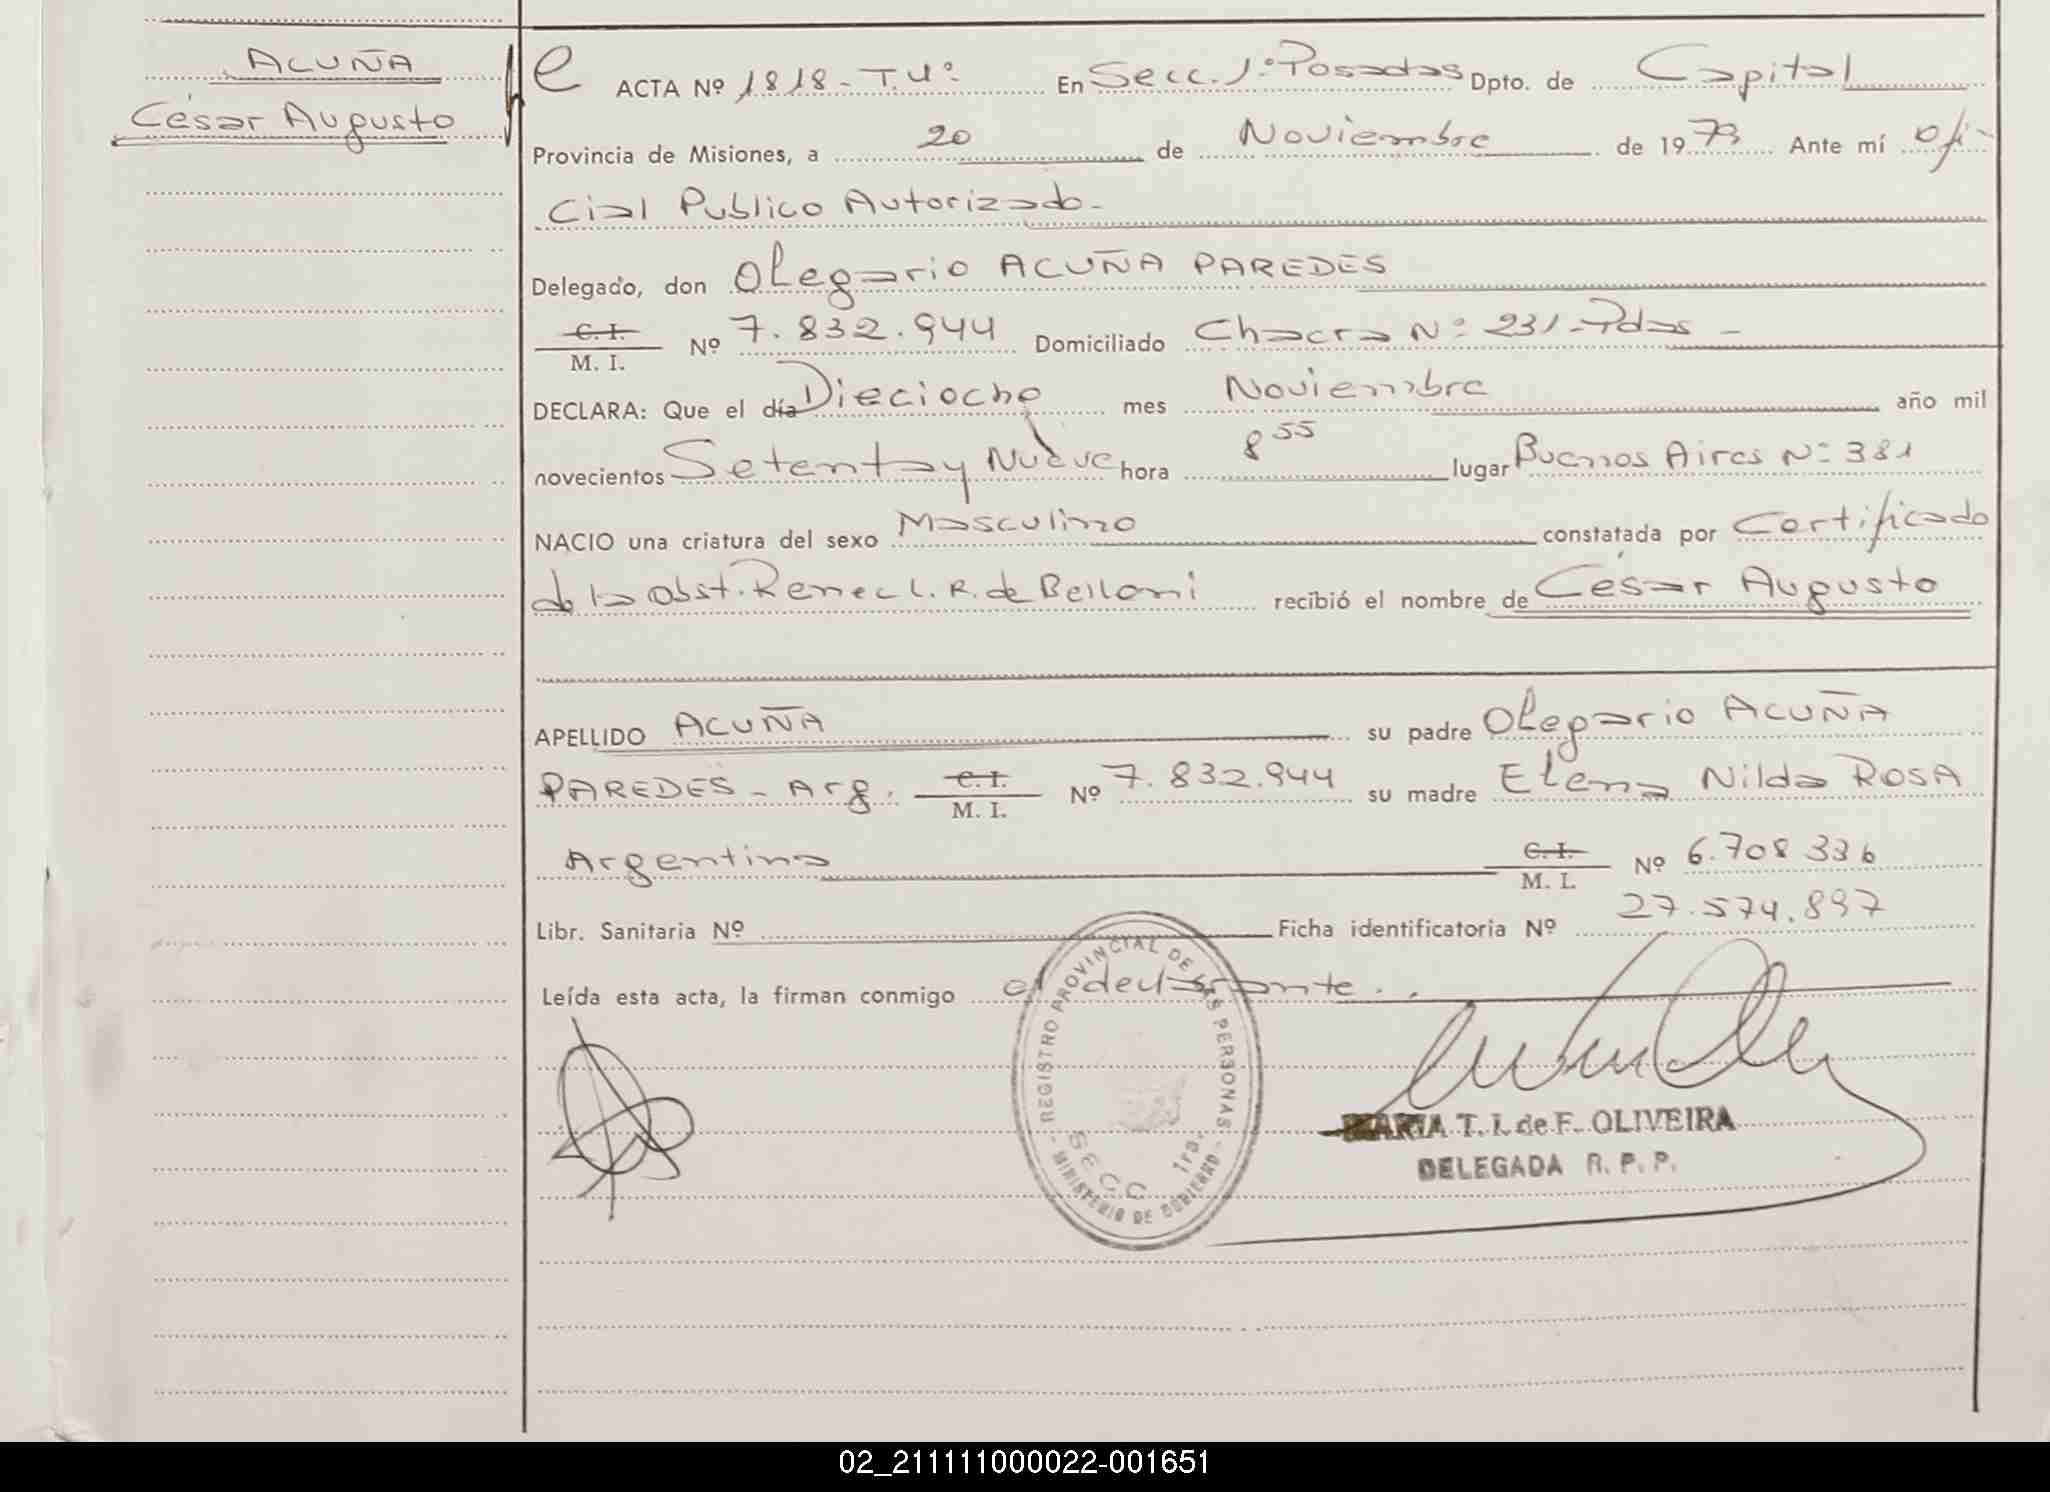 ACUÑA
César Augusto
ACTA Nº 1818- T.4º En Secc. 1º Posadas Dpto. de Capital
Provincia de Misiones, a 20 de Noviembre de 1979 Ante mí ofi-
cial Publico Autorizado-
Delegado, don Olegario ACUÑA PAREDES
C.I. / M. I. Nº 7.832.944 Domiciliado Chacra Nº 231-Pdas-
DECLARA: Que el día Dieciocho mes Noviembre año mil
novecientos Setenta y Nueve hora 8 55 lugar Buenos Aires Nº 381
NACIO una criatura del sexo Masculino constatada por Certificado
de la Obst. Renee L. R. de Belloni recibió el nombre de César Augusto
APELLIDO ACUÑA su padre Olegario ACUÑA
PAREDES - Arg. C.I. / M. I. Nº 7.832.944 su madre Elena Nilda ROSA
Argentina C.I. / M. I. Nº 6.708 336
Libr. Sanitaria Nº Ficha identificatoria Nº 27.574.897
Leída esta acta, la firman conmigo el declarante.
REGISTRO PROVINCIAL DE LAS PERSONAS
SECC 1ra.
- MINISTERIO DE GOBIERNO -
MARIA T. I. de F. OLIVEIRA
DELEGADA R. P. P.
02_211111000022-001651